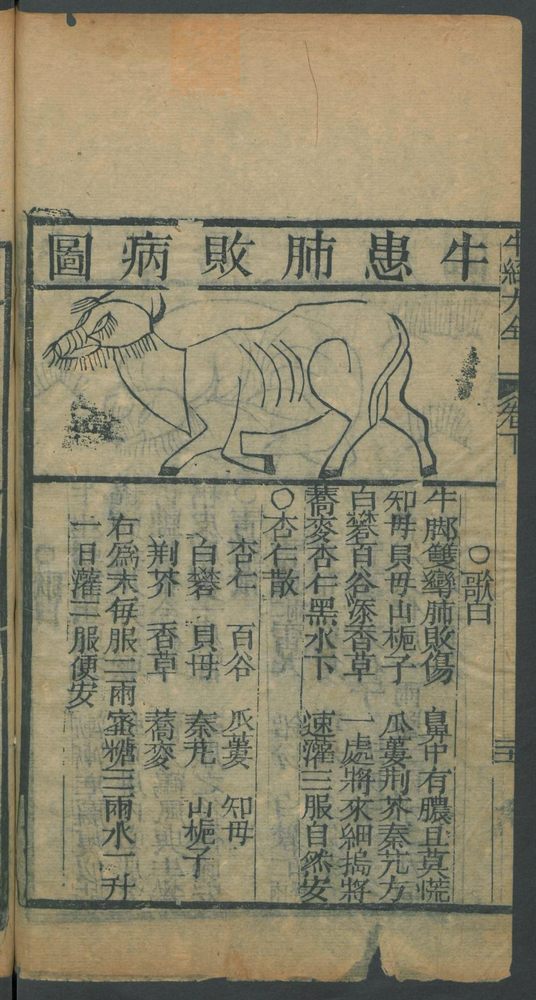 牛患肺敗病圖
○歌曰
牛脚雙彎肺敗傷 鼻中有膿且莫慌
知母貝母山梔子 瓜蔞荆芥秦艽方
白礬百谷添香草 一處將來細搗將
蕎麥杏仁黑水下 速灌三服自然安
○杏仁散
杏仁 百谷 瓜蔞 知母
白礬 貝母 秦艽 山梔子
荆芥 香草 蕎麥
右爲末每服二兩蜜糖三兩水二升
一日灌二服便安
牛經大全 卷下